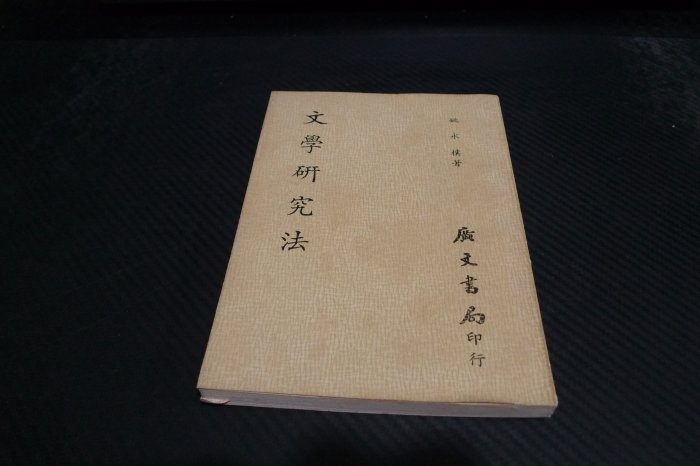 姚永樸著
文學研究法
廣文書局印行